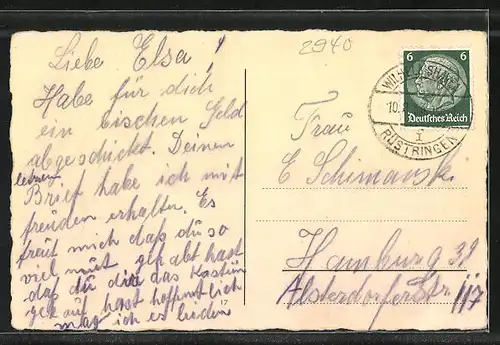 Liebe Elsa!
Habe für dich
ein bischen Geld
abgeschickt. Deinen
letzen
Brief habe ich mit
freuden erhalten. Es
freut mich daß du so
viel mut gehabt hast
daß du dir das Kostüm
gekauf hast hoffentlich
mag ich es leiden
2940
6 6
Deutsches Reich
WILHELMSHAVEN
10.
RÜSTRINGEN
Frau
E Schimanski
Hamburg 39
Alsterdorferstr 117